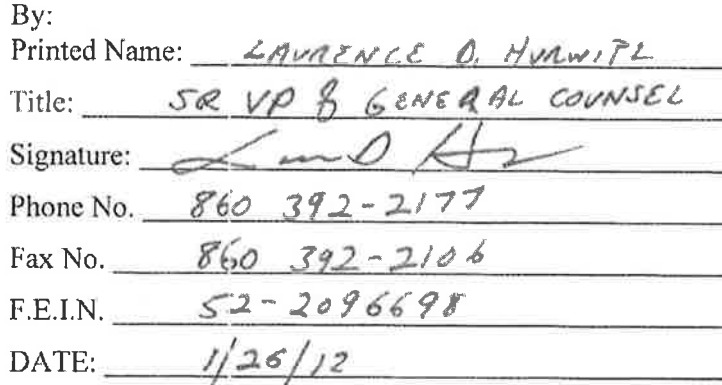 By:
Printed Name: LAURENCE D. HURWITZ
Title: SR VP & GENERAL COUNSEL
Signature:
Phone No. 860 392-2177
Fax No. 860 392-2106
F.E.I.N. 52-2096698
DATE: 1/26/12